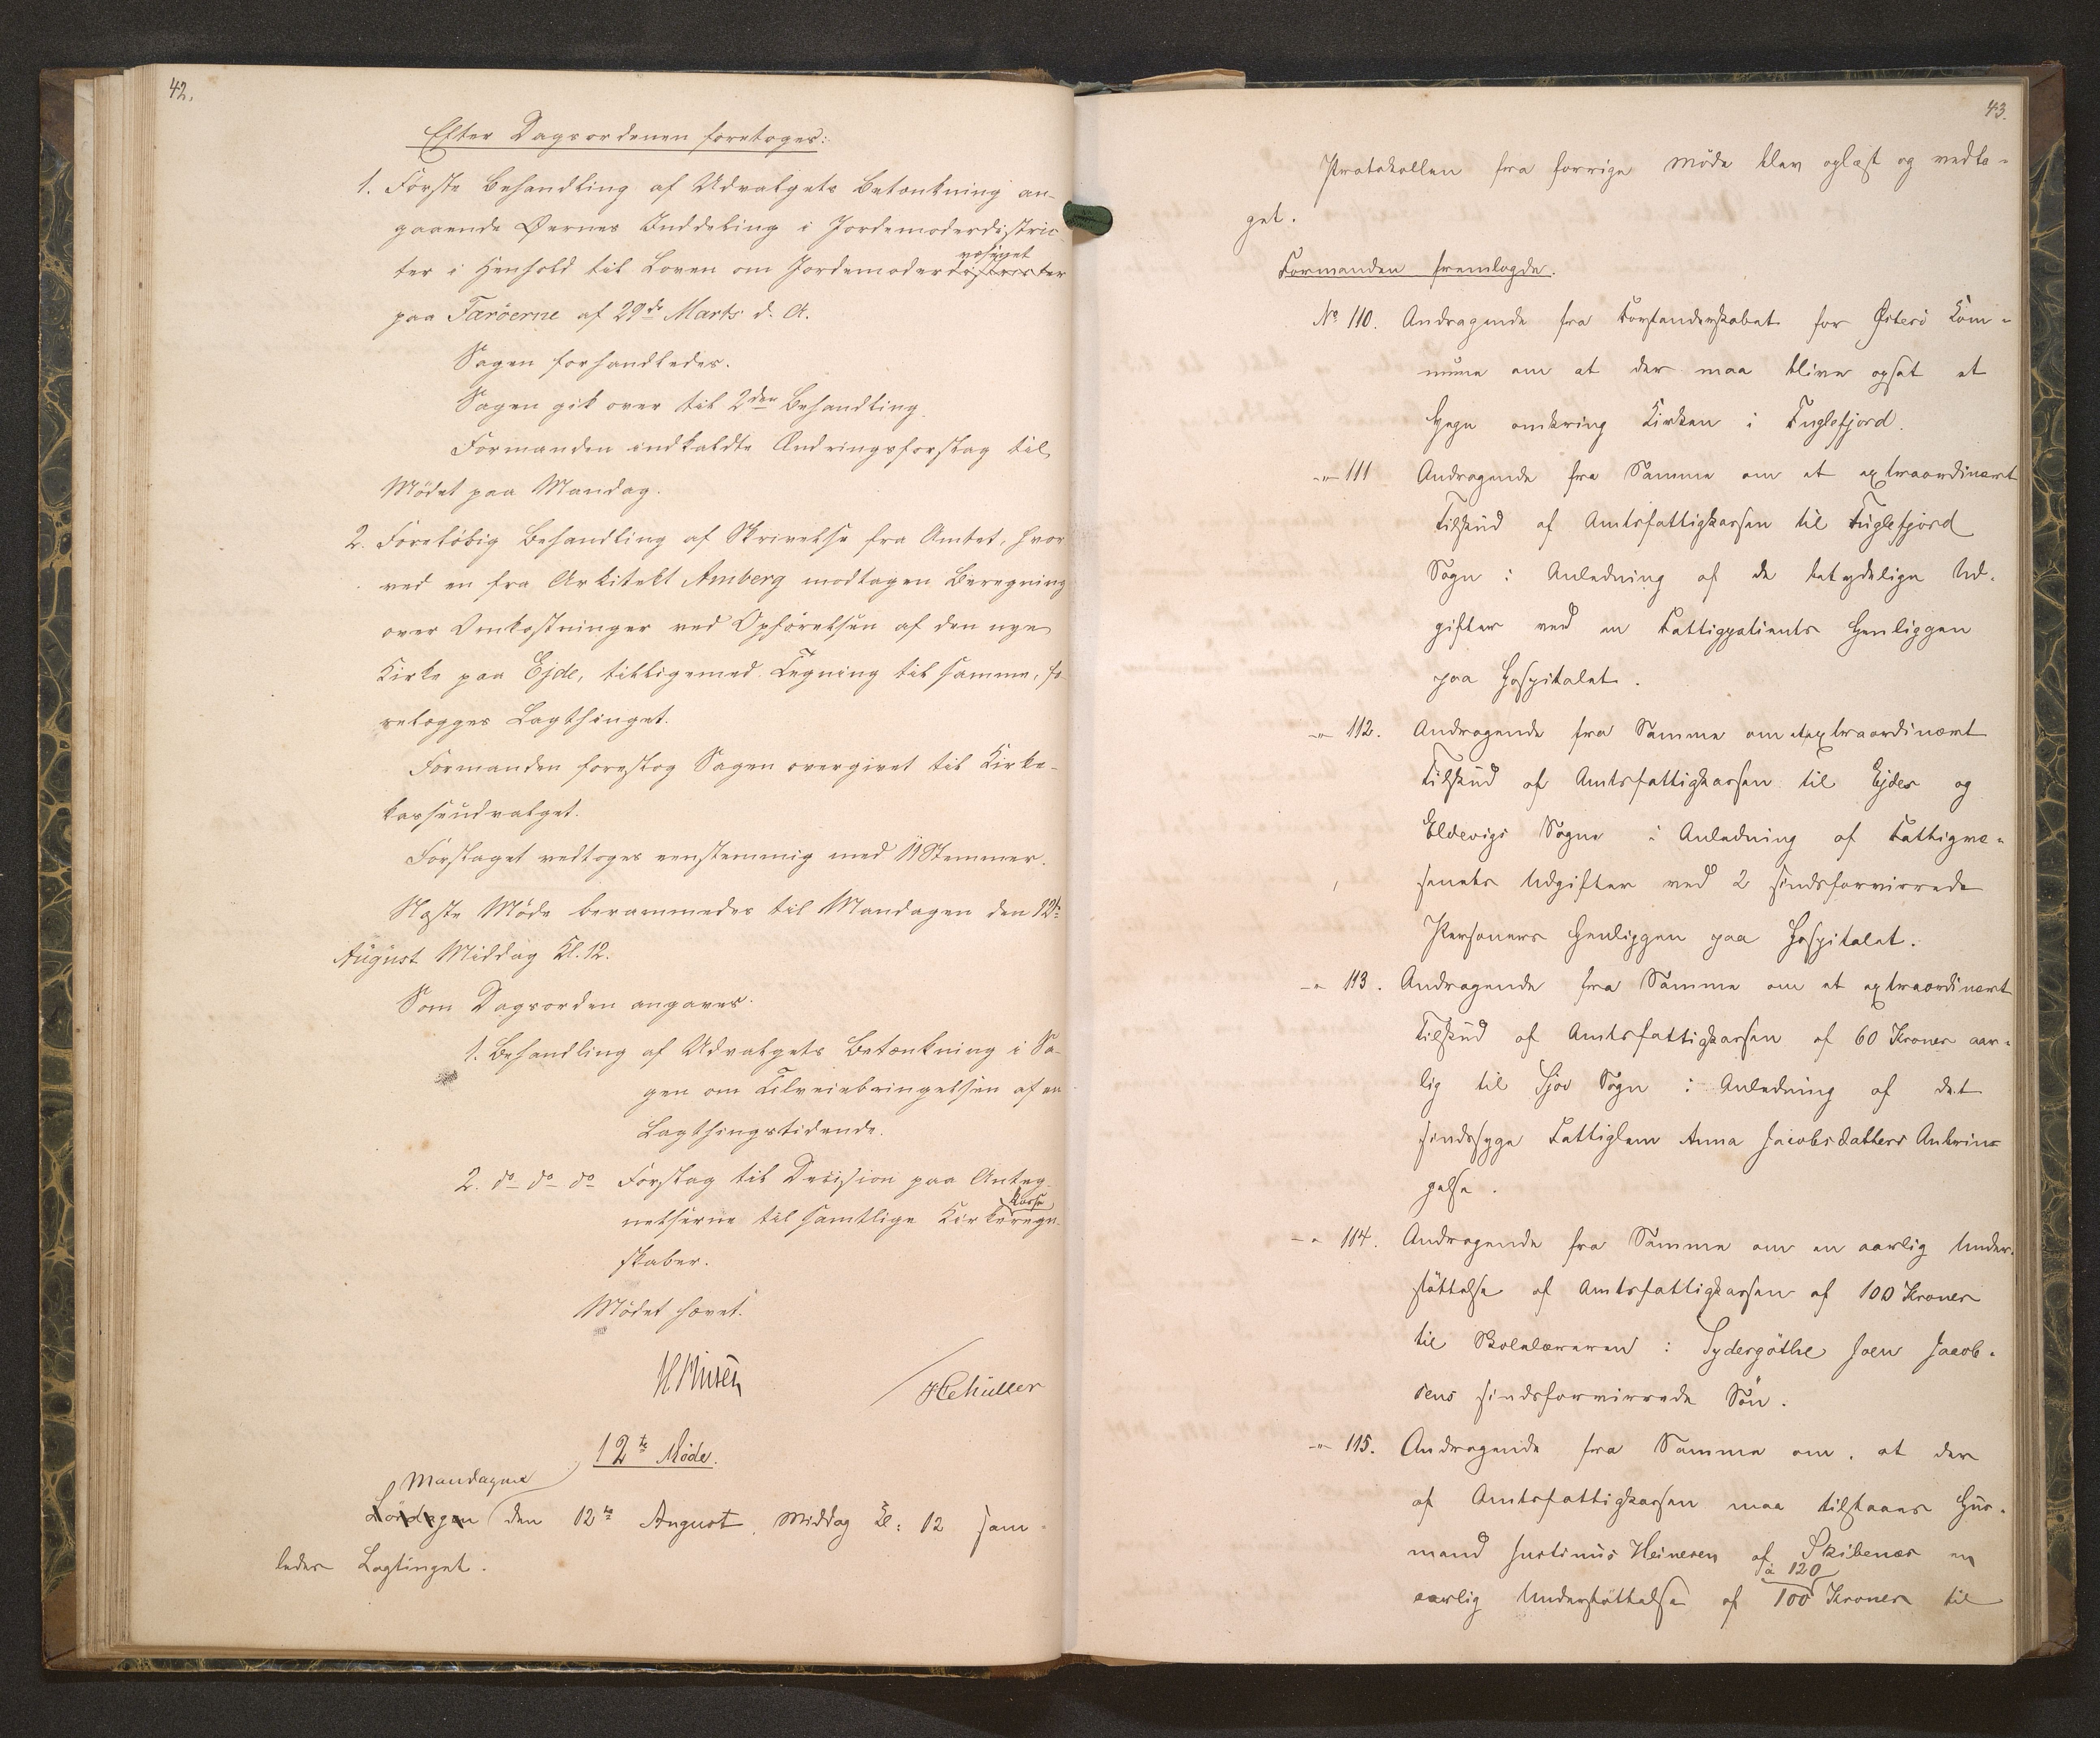 42.
Efter Dagsordenen foretoges:
1. Første Behandling af Udvalgets Betænkning an-
gaaende Øernes Inddeling i Jordemoderdistric-
væsenet
ter i Henhold til Loven om Jordemoderdistricter
paa Færöerne af 29de Marts d. A.
Sagen forhandledes.
Sagen gik over til 2den Behandling.
Formanden indkaldte Ændringsforslag til
Mödet paa Mandag.
2. Foreløbig Behandling af Skrivelse fra Amtet, hvor
ved en fra Arkitekt Amberg modtagen Beregning
over Omkostninger ved Opførelsen af den nye
Kirke paa Ejde, tilligemed Tegning til samme, fo-
relægges Lagthinget.
Formanden foreslog Sagen overgivet til Kirke-
kasseudvalget.
Forslaget vedtoges eenstemmig med 11 Stemmer.
Næste Møde berammedes til Mandagen den 12te
August Middag Kl. 12.
Som Dagsorden angaves:
1. Behandling af Udvalgets Betænkning i Sa-
gen om Tilveiebringelsen af en
Lagthingstidende.
2. do do do Forslag til Decision paa Anteg-
kasse
nelserne til samtlige Kirkeregn-
skaber.
Mödet hævet.
HSchüller
12te Møde.
Mandagen
Lördagen den 12te August Middag Kl: 12 sam-
ledes Lagtinget.
43.
Protokollen fra forrige Möde blev oplæst og vedta-
get.
Formanden fremlagde.
No 110. Andragende fra Forstanderskabet for Österö Kom-
mune om at der maa blive opsat et
Hegn omkring Kirken i Fuglefjord.
-"- 111 Andragende fra Samme om et extraordinært
Tilskud af Amtsfattigkassen til Fuglefjord
Sogn i Anledning af de betydelige Ud-
gifter ved en Fattigpatients Henliggen
paa Hospitalet.
-"- 112. Andragende fra Samme om et extraordinært
Tilskud af Amtsfattigkassen til Ejdes og
Eldevigs Sogne i Anledning af Fattigvæ-
senets Udgifter ved 2 sindsforvirrede
Personers Henliggen paa Hospitalet.
-"- 113. Andragende fra Samme om et extraordinært
Tilskud af Amtsfattigkassen af 60 Kroner aar-
lig til Sjov Sogn i Anledning af det
sindssyge Fattiglem Anna Jacobsdatters Anbrin-
gelse.
-"- 114. Andragende fra Samme om en aarlig Under-
støttelse af Amtsfattigkassen af 100 Kroner
til Skolelæreren i Sydergöthe Joen Jacob-
sens sindsforvirrede Sön.
-"- 115. Andragende fra Samme om, at der
af Amtsfattigkassen maa tilstaaes Hus-
mand Justinus Heinesen af Skibenæs en
à 120
aarlig Understøttelse af 100 Kroner til